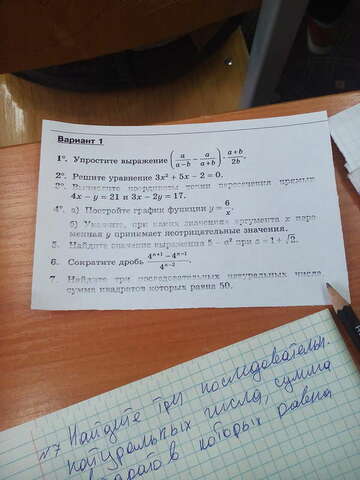 Вариант 1
1°. Упростите выражение (a/(a−b) − a/(a+b)) · (a+b)/2b.
2°. Решите уравнение 3x² + 5x − 2 = 0.
3°. Вычислите координаты точки пересечения прямых
4x − y = 21 и 3x − 2y = 17.
4°. а) Постройте график функции y = 6/x.
б) Укажите, при каких значениях аргумента x пере-
менная y принимает неотрицательные значения.
5. Найдите значение выражения 5 − a² при a = 1 + √2.
6. Сократите дробь (4ⁿ⁺¹ − 4ⁿ⁻¹)/4ⁿ⁻².
7. Найдите три последовательных натуральных числа,
сумма квадратов которых равна 50.
№7 Найдите три последовательн.
натуральных числа, сумма
квадратов которых равна